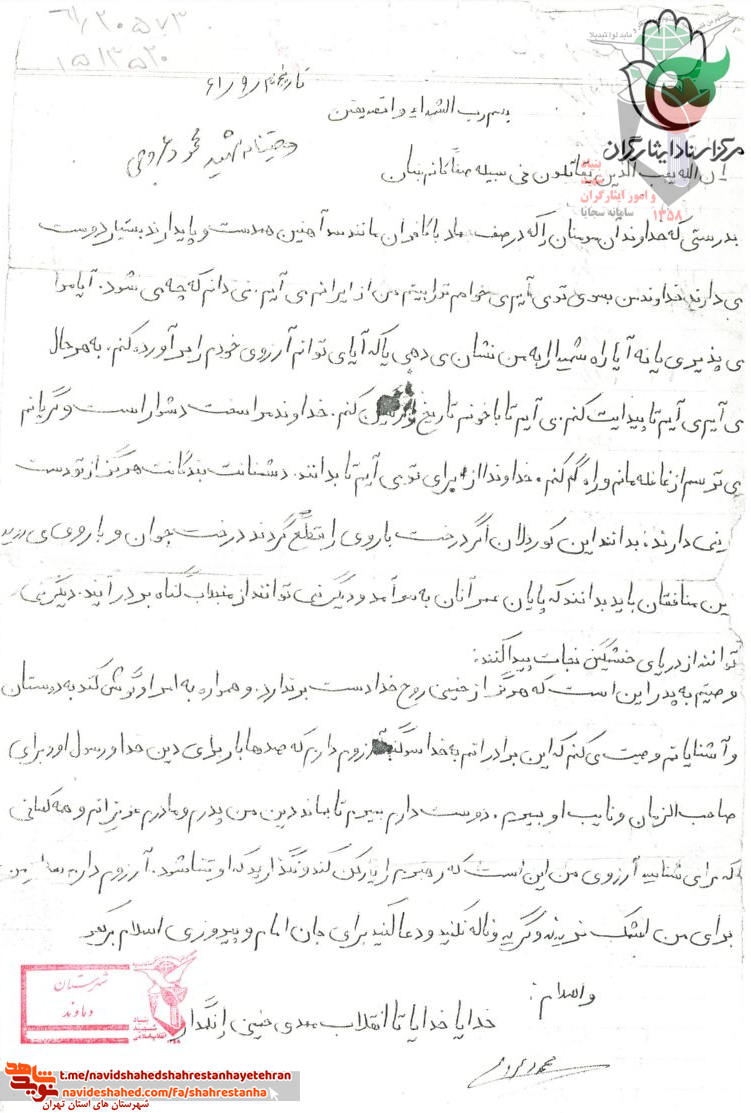 ۶۱/۲۰۵۷۳
۱۵۱۳۵۲۰
مرکز اسناد ایثارگران
بنیاد شهید و امور ایثارگران
سامانه سجایا ۱۳۵۸
بسم رب الشهداء و الصدیقین
وصیتنامه شهید محمود
ان الله یحب الذین یقاتلون فی سبیله صفا کانهم بنیان
بدرستی که خداوند آن مومنان را که در صف جهاد با کافران مانند سد آهنین همدست و پایدارند بسیار دوست
می دارند خداوند من بسوی تو می آیم می خواهم تو را ببینم من از ایرانم می آیم نمی دانم که چه می شود. آیا مرا
می پذیری یا نه آیا راه شهید را به من نشان می دهی یا که آیا می توانم آرزوی خودم را برآورده کنم. به هر حال
می آیم می آیم تا پیدایت کنم. می آیم تا با خونم تاریخ کنم. خداوند مرا سخت دشوار است و گریانم
می ترسم از غافله مانم و راه گم کنم. خداوندا برای تو می آیم تا بدانند. دشمنانت بندگانت هرگز از تو دست
بر نمی دارند؛ بدانند این کوردلان اگر درخت باروی را قطع کردند درخت جوان و باروی می
این منافقان باید بدانند که پایان عمر آنان به سر آمد و دیگر نمی توانند از منجلاب گناه بر در آیند. دیگر نمی
توانند از دریای خشمگین نجات پیدا کنند:
وصیتم به پدر این است که هرگز از خمینی روح خدا دست برندارد. و همواره به امر او گوش کند به دوستان
و آشنایانم وصیت می کنم که این برادرانم به خدا سوگند آرزو دارم که صدها بار برای دین خدا و رسول او و برای
صاحب الزمان و نایب او بمیرم. دوست دارم بمیرم تا بماند دین من پدرم و مادرم عزیزانم و همه کسانی
که مرا می شناسید آرزوی من این است که رهبرم را یاری کنند و نگذارید که او تنها شود. آرزو دارم بعد از من
برای من اشک نریزند و گریه و ناله نکنید و دعا کنید برای جان امام و پیروزی اسلام بر کفر
والسلام:
خدایا خدایا تا انقلاب مهدی خمینی را نگهدار
شهرستان
دماوند
بنیاد شهید انقلاب اسلامی
نوید شاهد
t.me/navidshahedshahrestanhayetehran
navideshahed.com/fa/shahrestanha
شهرستان های استان تهران